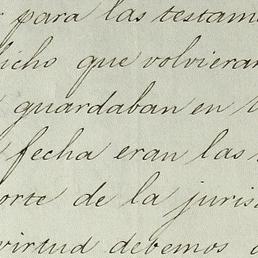 para las testam
dicho que volvieran
guardaban en
fecha eran las
orte de la juris
virtud debemos